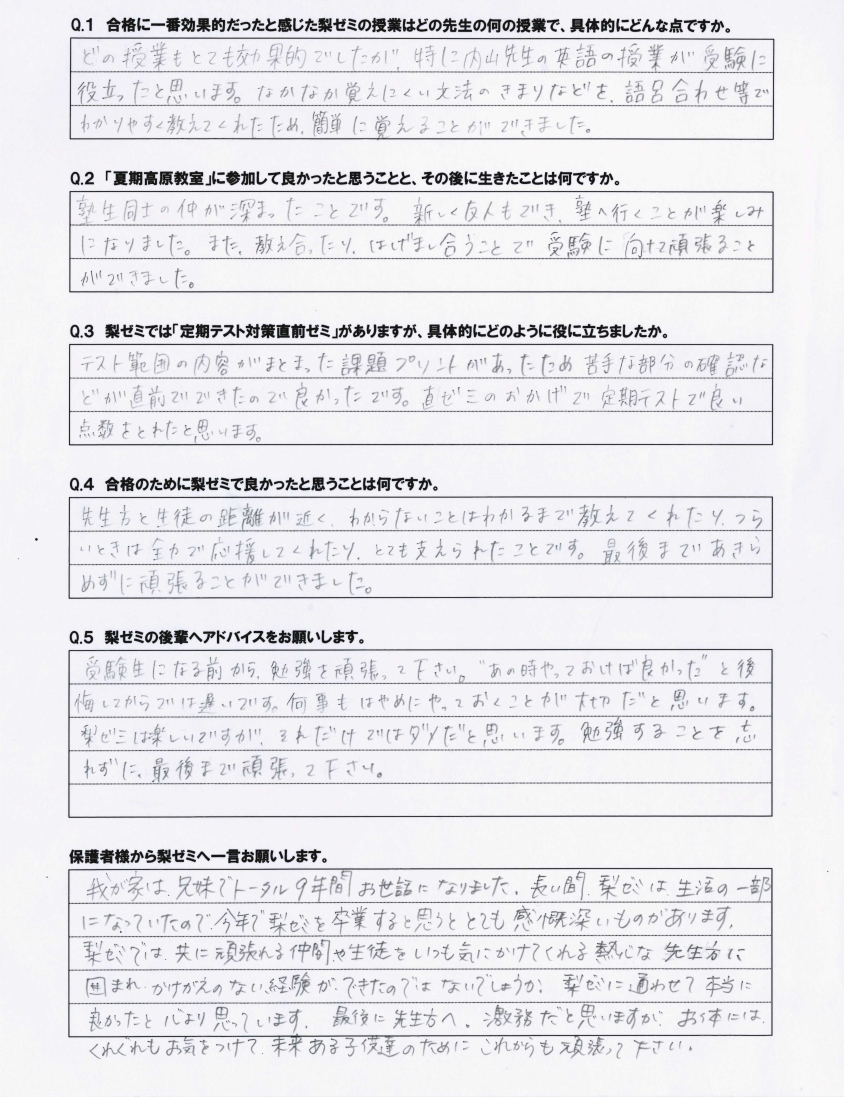 Q.1 合格に一番効果的だったと感じた梨ゼミの授業はどの先生の何の授業で、具体的にどんな点ですか。
どの授業もとても効果的でしたが、特に内山先生の英語の授業が受験に
役立ったと思います。なかなか覚えにくい文法のきまりなどを、語呂合わせ等で
わかりやすく教えてくれたため、簡単に覚えることができました。
Q.2 「夏期高原教室」に参加して良かったと思うことと、その後に生きたことは何ですか。
塾生同士の仲が深まったことです。新しく友人もでき、塾へ行くことが楽しみ
になりました。また、教え合ったり、はげまし合うことで受験に向けて頑張ること
ができました。
Q.3 梨ゼミでは「定期テスト対策直前ゼミ」がありますが、具体的にどのように役に立ちましたか。
テスト範囲の内容がまとまった課題プリントがあったため苦手な部分の確認な
どが直前でできたので良かったです。直ゼミのおかげで定期テストで良い
点数をとれたと思います。
Q.4 合格のために梨ゼミで良かったと思うことは何ですか。
先生方と生徒の距離が近く、わからないことはわかるまで教えてくれたり、つら
いときは全力で応援してくれたり、とても支えられたことです。最後まであきら
めずに頑張ることができました。
Q.5 梨ゼミの後輩へアドバイスをお願いします。
受験生になる前から、勉強を頑張って下さい。"あの時やっておけば良かった"と後
悔してからでは遅いです。何事もはやめにやっておくことが大切だと思います。
梨ゼミは楽しいですが、それだけではダメだと思います。勉強することを忘
れずに、最後まで頑張って下さい。
保護者様から梨ゼミへ一言お願いします。
我が家は、兄妹でトータル9年間お世話になりました。長い間、梨ゼミは、生活の一部
になっていたので、今年で梨ゼミを卒業すると思うととても感慨深いものがあります。
梨ゼミでは、共に頑張れる仲間や生徒をいつも気にかけてくれる熱心な先生方に
囲まれ、かけがえのない経験ができたのではないでしょうか。梨ゼミに通わせて本当に
良かったと心より思っています。最後に先生方へ。激務だと思いますが、お体には、
くれぐれもお気をつけて、未来ある子供達のためにこれからも頑張って下さい。